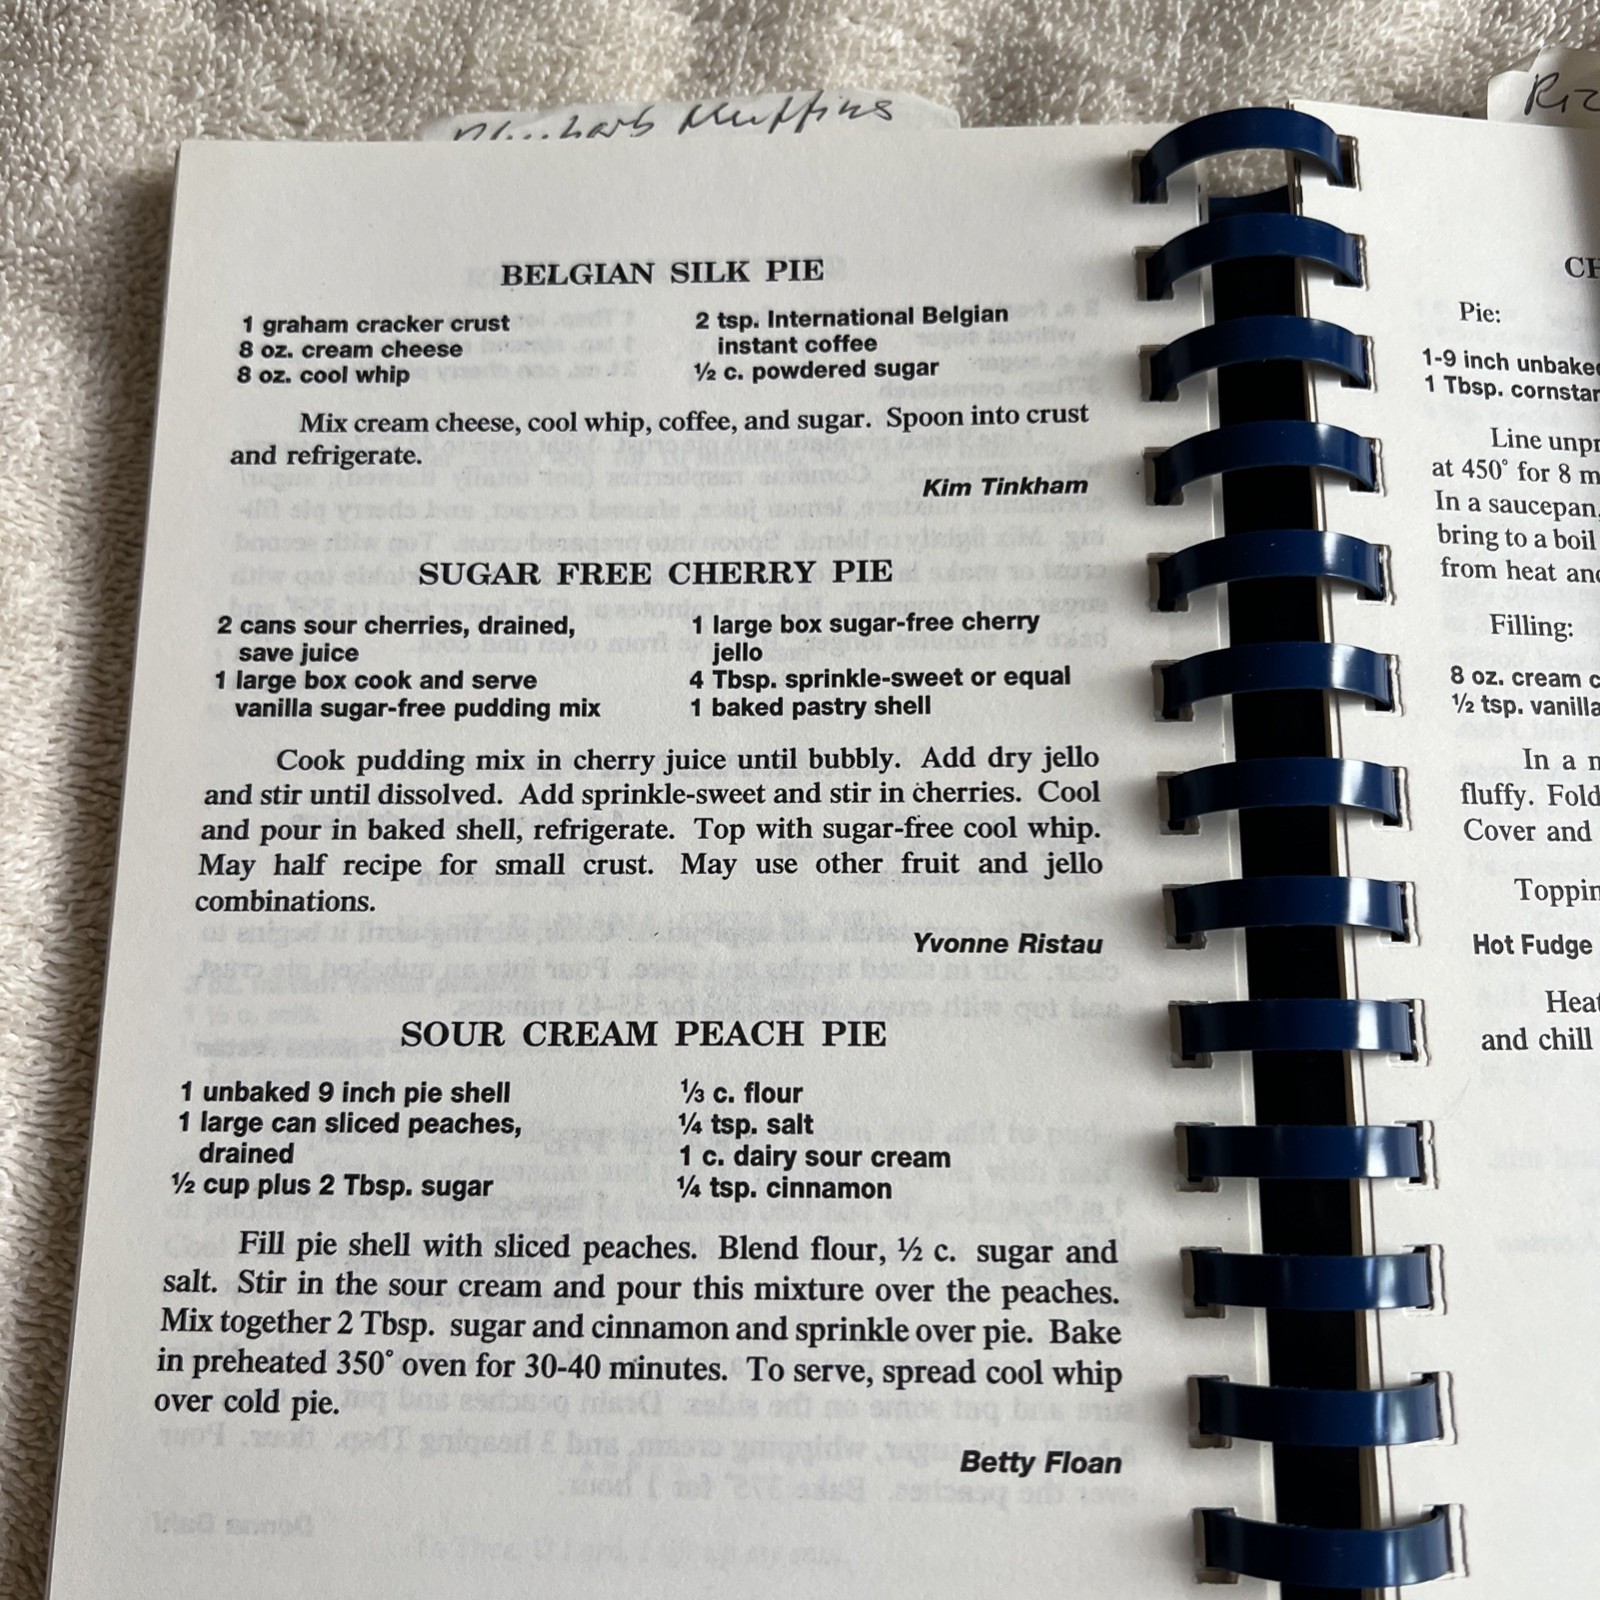 Muffins
BELGIAN SILK PIE
1 graham cracker crust
8 oz. cream cheese
8 oz. cool whip
2 tsp. International Belgian
instant coffee
½ c. powdered sugar
Mix cream cheese, cool whip, coffee, and sugar. Spoon into crust
and refrigerate.
Kim Tinkham
SUGAR FREE CHERRY PIE
2 cans sour cherries, drained,
save juice
1 large box cook and serve
vanilla sugar-free pudding mix
1 large box sugar-free cherry
jello
4 Tbsp. sprinkle-sweet or equal
1 baked pastry shell
Cook pudding mix in cherry juice until bubbly. Add dry jello
and stir until dissolved. Add sprinkle-sweet and stir in cherries. Cool
and pour in baked shell, refrigerate. Top with sugar-free cool whip.
May half recipe for small crust. May use other fruit and jello
combinations.
Yvonne Ristau
SOUR CREAM PEACH PIE
1 unbaked 9 inch pie shell
1 large can sliced peaches,
drained
½ cup plus 2 Tbsp. sugar
⅓ c. flour
¼ tsp. salt
1 c. dairy sour cream
¼ tsp. cinnamon
Fill pie shell with sliced peaches. Blend flour, ½ c. sugar and
salt. Stir in the sour cream and pour this mixture over the peaches.
Mix together 2 Tbsp. sugar and cinnamon and sprinkle over pie. Bake
in preheated 350° oven for 30-40 minutes. To serve, spread cool whip
over cold pie.
Betty Floan
Pie:
1-9 inch
1 Tbsp.
Line
at 450° for 8
In a saucepan,
bring to a boil
from heat
Filling:
8 oz. cream
½ tsp. vanilla
In a
fluffy. Fold
Cover and
Hot Fudge
and chill